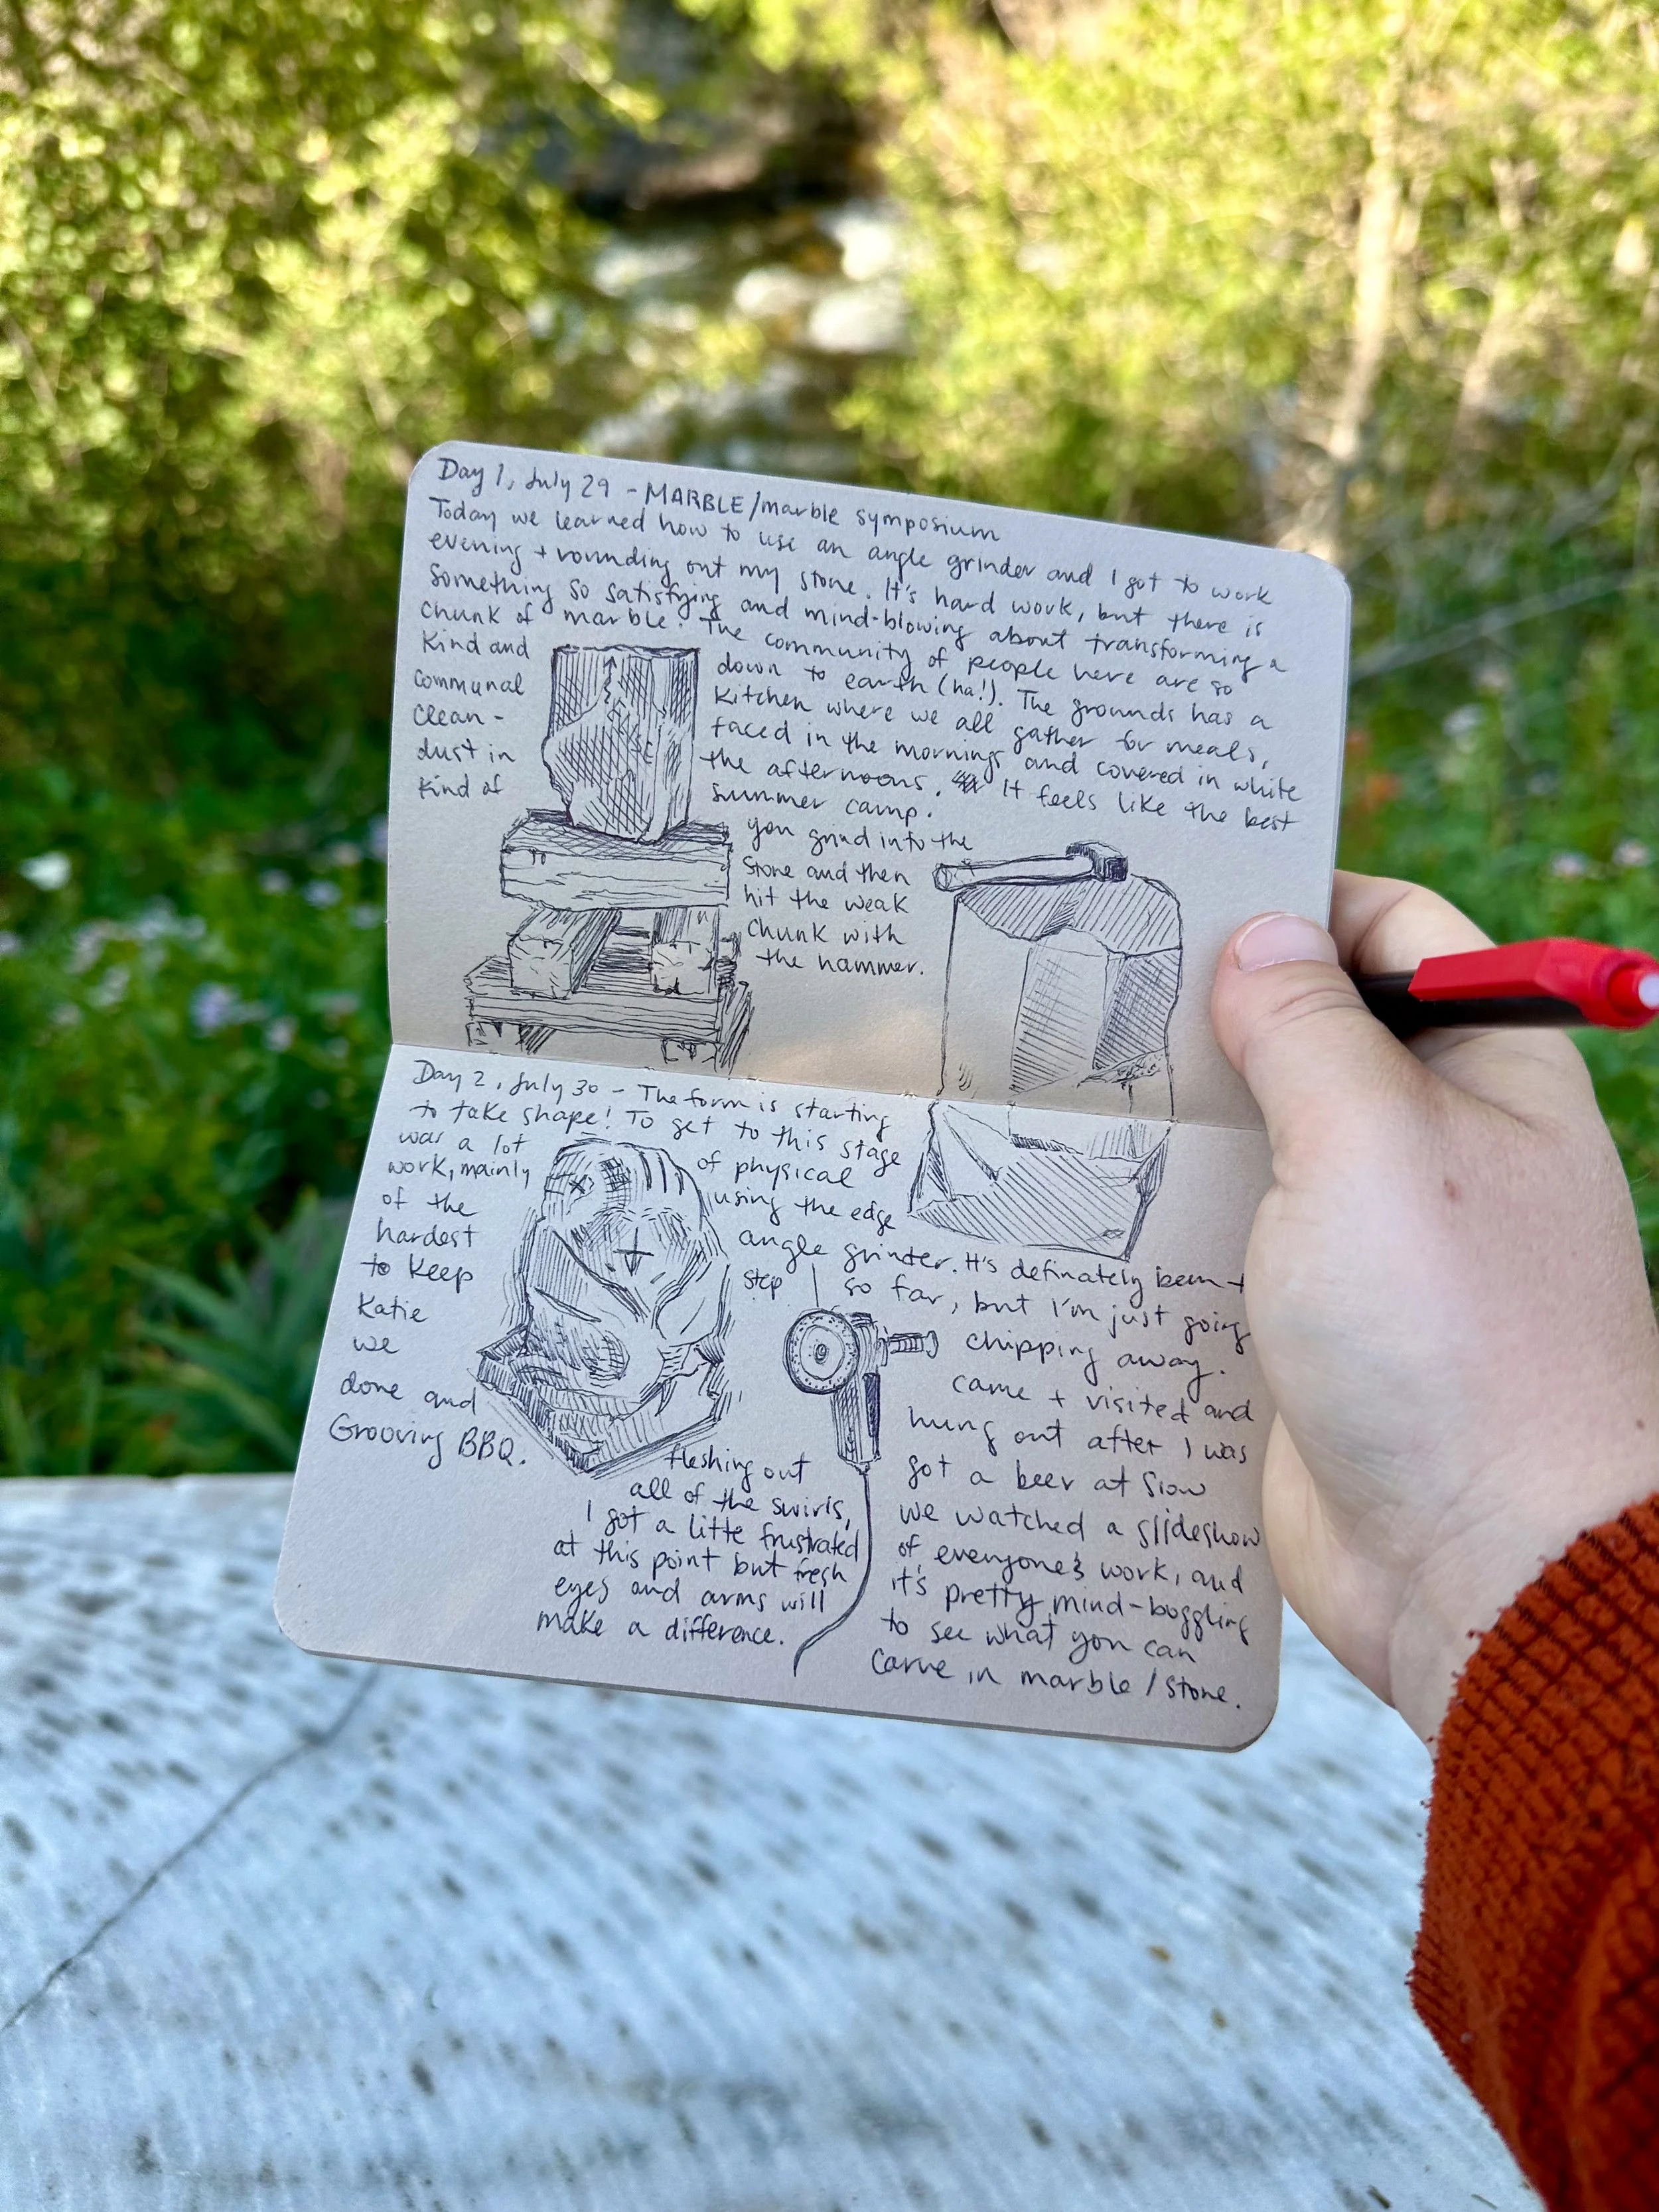 Day 1, July 29 - MARBLE/marble symposium
Today we learned how to use an angle grinder and I got to work
evening + rounding out my stone. It's hard work, but there is
something so satisfying and mind-blowing about transforming a
chunk of marble. The community of people here are so
kind and down to earth (ha!). The grounds has a
communal kitchen where we all gather for meals,
clean- faced in the mornings and covered in white
dust in the afternoons. It feels like the best
kind of summer camp.
you grind into the
stone and then
hit the weak
chunk with
the hammer.
Day 2, July 30 - The form is starting
to take shape! To get to this stage
was a lot of physical
work, mainly using the edge
of the angle grinter. It's definately been
hardest step so far, but I'm just going
to keep chipping away.
Katie came + visited and
we hung out after I was
done and got a beer at Slow
Grooving BBQ. we watched a slideshow
of everyone's work, and
it's pretty mind-boggling
to see what you can
carve in marble/stone.
fleshing out
all of the swirls,
I got a litte frustrated
at this point but fresh
eyes and arms will
make a difference.